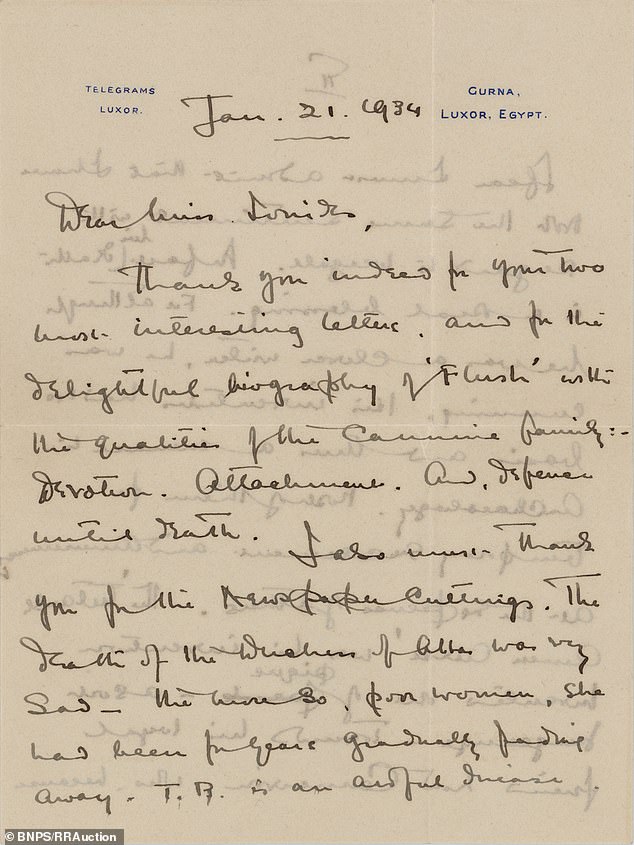 TELEGRAMS
LUXOR.
GURNA,
LUXOR, EGYPT.
Jan. 21. 1934
Dear Miss Ionides,
Thank you indeed for your two
most interesting letters, and for the
delightful biography of 'Flush' with
the qualities of the Cannine family:-
Devotion. Attachment. And, defence
until death. I also must thank
you for the Newspaper Cuttings. The
death of the Duchess of Alba was very
Sad – the more so, poor women, she
had been for years gradually fading
away. T.B. is an awful disease.
© BNPS/RRAuction